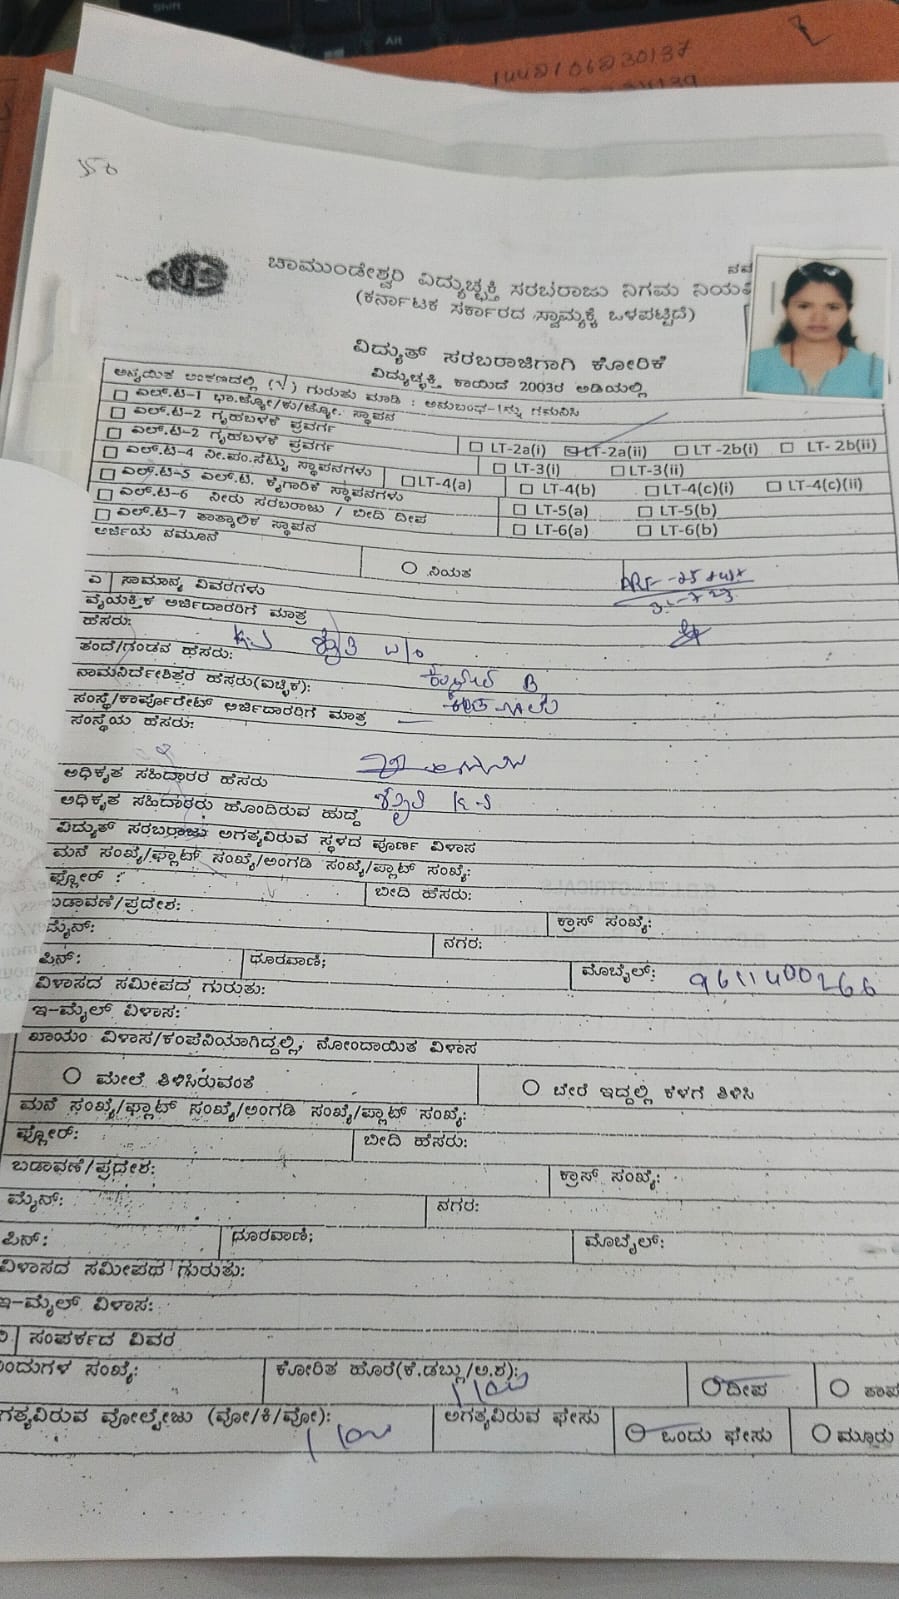 Shift
Alt
ಚಾಮುಂಡೇಶ್ವರಿ ವಿದ್ಯುಚ್ಛಕ್ತಿ ಸರಬರಾಜು ನಿಗಮ
(ಕರ್ನಾಟಕ ಸರ್ಕಾರದ ಸ್ವಾಮ್ಯಕ್ಕೆ ಒಳಪಟ್ಟಿದೆ)
ವಿದ್ಯುತ್ ಸರಬರಾಜಿಗಾಗಿ ಕೋರಿಕೆ
ವಿದ್ಯುಚ್ಛಕ್ತಿ ಕಾಯಿದೆ 2003ರ ಅಡಿಯಲ್ಲಿ
ಅನ್ವಯಿಕ ಅಂಕಣದಲ್ಲಿ (√) ಗುರುತು ಮಾಡಿ : ಅನುಬಂಧ-1ನ್ನು ಗಮನಿಸಿ
ಎಲ್.ಟಿ-1 ಭಾ.ಜ್ಯೋ/ಕು/ಜ್ಯೋ. ಸ್ಥಾಪನ
ಎಲ್.ಟಿ-2 ಗೃಹಬಳಕೆ ಪ್ರವರ್ಗ
ಎಲ್.ಟಿ-2 ಗೃಹಬಳಕೆ ಪ್ರವರ್ಗ LT-2a(i) LT-2a(ii) LT -2b(i) LT- 2b(ii)
ಎಲ್.ಟಿ-4 ನೀ.ಪಂ.ಸೆಟ್ಟು ಸ್ಥಾಪನಗಳು LT-3(i) LT-3(ii)
ಎಲ್.ಟಿ-5 ಎಲ್.ಟಿ. ಕೈಗಾರಿಕೆ ಸ್ಥಾಪನಗಳು LT-4(a) LT-4(b) LT-4(c)(i) LT-4(c)(ii)
ಎಲ್.ಟಿ-6 ನೀರು ಸರಬರಾಜು / ಬೀದಿ ದೀಪ LT-5(a) LT-5(b)
ಎಲ್.ಟಿ-7 ತಾತ್ಕಾಲಿಕ ಸ್ಥಾಪನ LT-6(a) LT-6(b)
ಅರ್ಜಿಯ ನಮೂನೆ
ನಿಯತ
ಎ ಸಾಮಾನ್ಯ ವಿವರಗಳು
ವೈಯಕ್ತಿಕ ಅರ್ಜಿದಾರರಿಗೆ ಮಾತ್ರ
ಹೆಸರು:
ತಂದೆ/ಗಂಡನ ಹೆಸರು:
ನಾಮನಿರ್ದೇಶಿತರ ಹೆಸರು(ಐಚ್ಛಿಕ):
ಸಂಸ್ಥೆ/ಕಾರ್ಪೊರೇಟ್ ಅರ್ಜಿದಾರರಿಗೆ ಮಾತ್ರ
ಸಂಸ್ಥೆಯ ಹೆಸರು:
ಅಧಿಕೃತ ಸಹಿದಾರರ ಹೆಸರು
ಅಧಿಕೃತ ಸಹಿದಾರರು ಹೊಂದಿರುವ ಹುದ್ದೆ
ವಿದ್ಯುತ್ ಸರಬರಾಜು ಅಗತ್ಯವಿರುವ ಸ್ಥಳದ ಪೂರ್ಣ ವಿಳಾಸ
ಮನೆ ಸಂಖ್ಯೆ/ಫ್ಲಾಟ್ ಸಂಖ್ಯೆ/ಅಂಗಡಿ ಸಂಖ್ಯೆ/ಪ್ಲಾಟ್ ಸಂಖ್ಯೆ:
ಫ್ಲೋರ್ : ಬೀದಿ ಹೆಸರು:
ಬಡಾವಣೆ/ಪ್ರದೇಶ: ಕ್ರಾಸ್ ಸಂಖ್ಯೆ:
ಮೈನ್: ನಗರ:
ಪಿನ್: ಧೂರವಾಣಿ; ಮೊಬೈಲ್: 9611400266
ವಿಳಾಸದ ಸಮೀಪದ ಗುರುತು:
ಇ-ಮೈಲ್ ವಿಳಾಸ:
ಖಾಯಂ ವಿಳಾಸ/ಕಂಪನಿಯಾಗಿದ್ದಲ್ಲಿ, ನೋಂದಾಯಿತ ವಿಳಾಸ
ಮೇಲೆ ತಿಳಿಸಿರುವಂತೆ ಬೇರೆ ಇದ್ದಲ್ಲಿ ಕೆಳಗೆ ತಿಳಿಸಿ
ಮನೆ ಸಂಖ್ಯೆ/ಫ್ಲಾಟ್ ಸಂಖ್ಯೆ/ಅಂಗಡಿ ಸಂಖ್ಯೆ/ಪ್ಲಾಟ್ ಸಂಖ್ಯೆ:
ಫ್ಲೋರ್: ಬೀದಿ ಹೆಸರು:
ಬಡಾವಣೆ/ಪ್ರದೇಶ: ಕ್ರಾಸ್ ಸಂಖ್ಯೆ:
ಮೈನ್: ನಗರ:
ಪಿನ್: ಧೂರವಾಣಿ; ಮೊಬೈಲ್:
ವಿಳಾಸದ ಸಮೀಪಥ ಗುರುತು:
ಇ-ಮೈಲ್ ವಿಳಾಸ:
ಸಂಪರ್ಕದ ವಿವರ
ಸಂಖ್ಯೆ: ಕೋರಿತ ಹೊರೆ(ಕೆ.ಡಬ್ಲು/ಅ.ಶ): ದೀಪ
ವೋಲ್ಟೇಜು (ವೋ/ಕಿ/ವೋ): ಅಗತ್ಯವಿರುವ ಫೇಸು ಒಂದು ಫೇಸು ಮೂರು